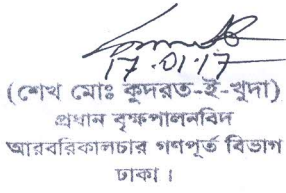 17.01.17
(শেখ মোঃ কুদরত-ই-খুদা)
প্রধান বৃক্ষপালনবিদ
আরবরিকালচার গণপূর্ত বিভাগ
ঢাকা ।